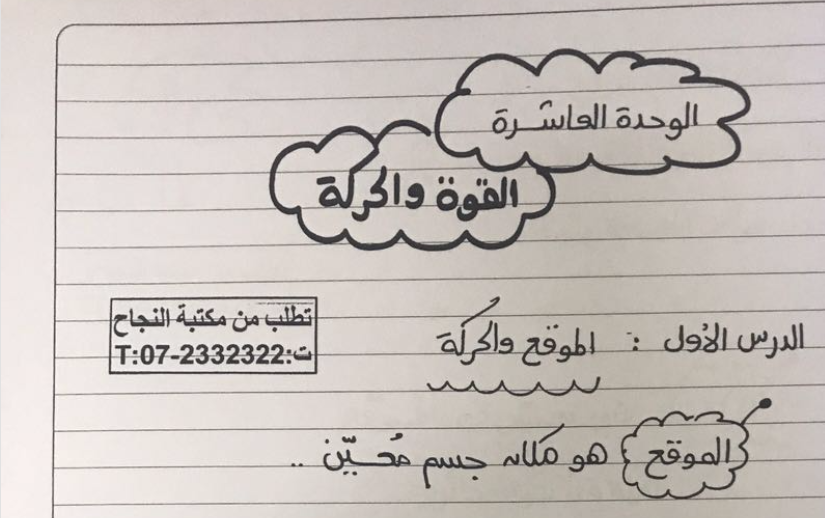 الوحدة العاشرة
القوة والحركة
تطلب من مكتبة النجاح
ت:T:07-2332322
الدرس الأول : الموقع والحركة
الموقع هو مكان جسم مُعيّن ..